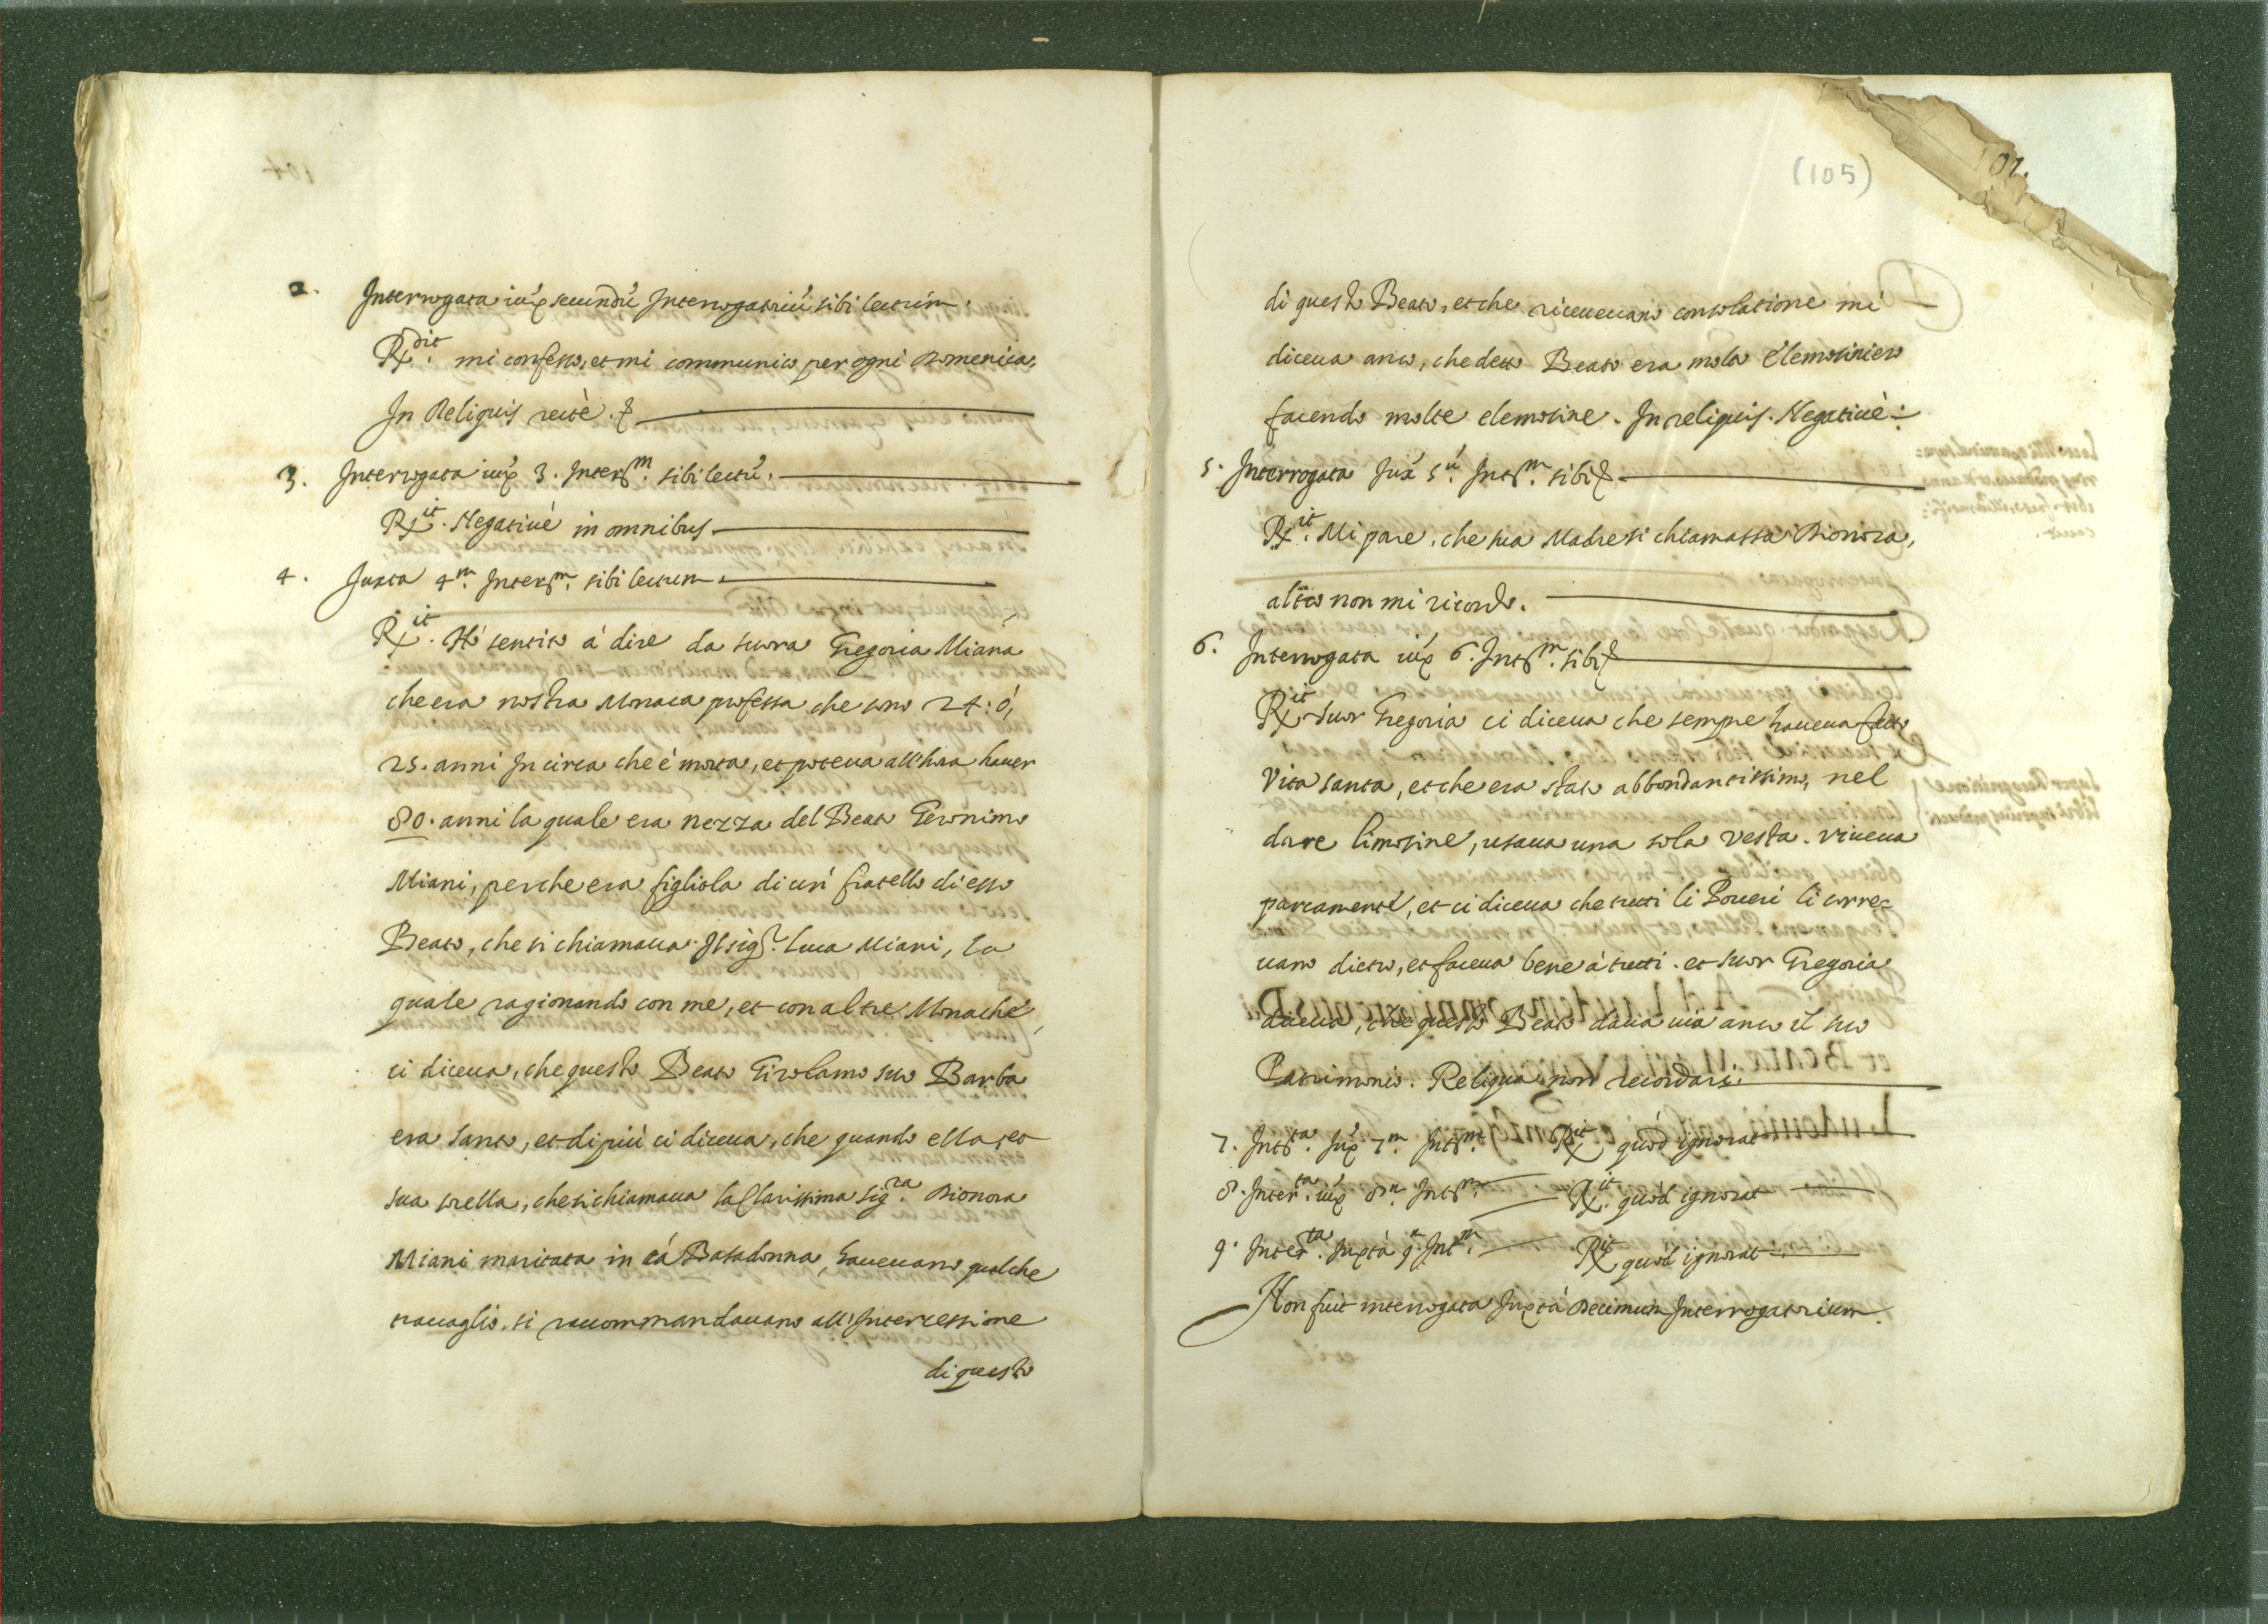 2. Interrogata iux̃ secundũ Interrogatoriũ sibi lectum.
R^dit. mi confesso, et mi communico per ogni Domenica,
In Reliquis recté. &
3. Interrogata iux̃ 3. Inter^m. sibi lectũ.
R^it. Negativè in omnibus
4. Juxta 4^m. Inter^m. sibi lectum.
R^it. Hò sentito à dire da suora Gregoria Miana
che era nostra Monaca professa che sono 24: ò,
25. anni In circa che è morta, et poteva all'hora haver
80. anni la quale era nezza del Beato Geronimo
Miani, perche era figliola di un fratello di esso
Beato, che si chiamava Il sig^r. Luca Miani, la
quale ragionando con me, et con altre Monache,
ci diceva, che questo Beato Girolamo suo Barba
era santo, et di più ci diceva, che quando ella, et
sua sorella, che si chiamava la Clarissima sig^ra. Dionora
Miani maritata in cá Basadonna, havevano qualche
travaglio, si raccommandavano all'Intercessione
di questo
(105)
di questo Beato, et che ricevevano consolatione mi
diceva anco, che detto Beato era molto elemosiniero
facendo molte elemosine. In reliquis. Negativè:
5. Interrogata Jux̃ 5^ũ. Int^m. sibi &
R^it. Mi pare, che sua Madre si chiamassa Dionora,
altro non mi ricordo.
6. Interrogata iux̃ 6. Int^m. sibi &
R^it. Suor Gregoria ci diceva che sempre haveva fatto
vita santa, et che era stato abbondantissimo, nel
dare limosine, usava una sola vesta. viveva
parcamente, et ci diceva che tutti li Poveri li corre-
vano dietro, et faceva bene à tutti. et suor Gregoria
diceva, che questo Beato dava via anco il suo
Patrimonio. Reliqua non recordari.
7. Int^ta. Jux̃ 7^m. Int^m. R^it quòd ignorat
8. Inter^ta. iux̃ 8^m. Int^m. R^it. quòd ignorat
9. Inter^ta. Juxtà 9^m. Int^m. R^it quòd ignorat
Non fuit interrogata Juxtà Decimum Interrogatorium.